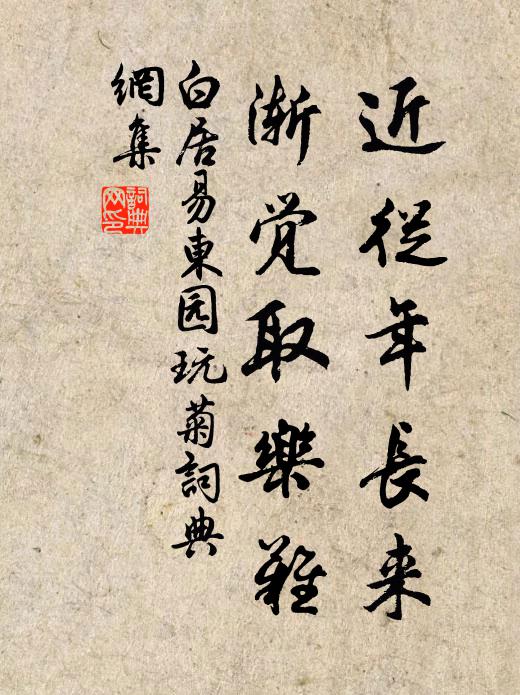 近從年長来
漸觉取樂難
白居易東园玩菊詞典
網集
詞典网印